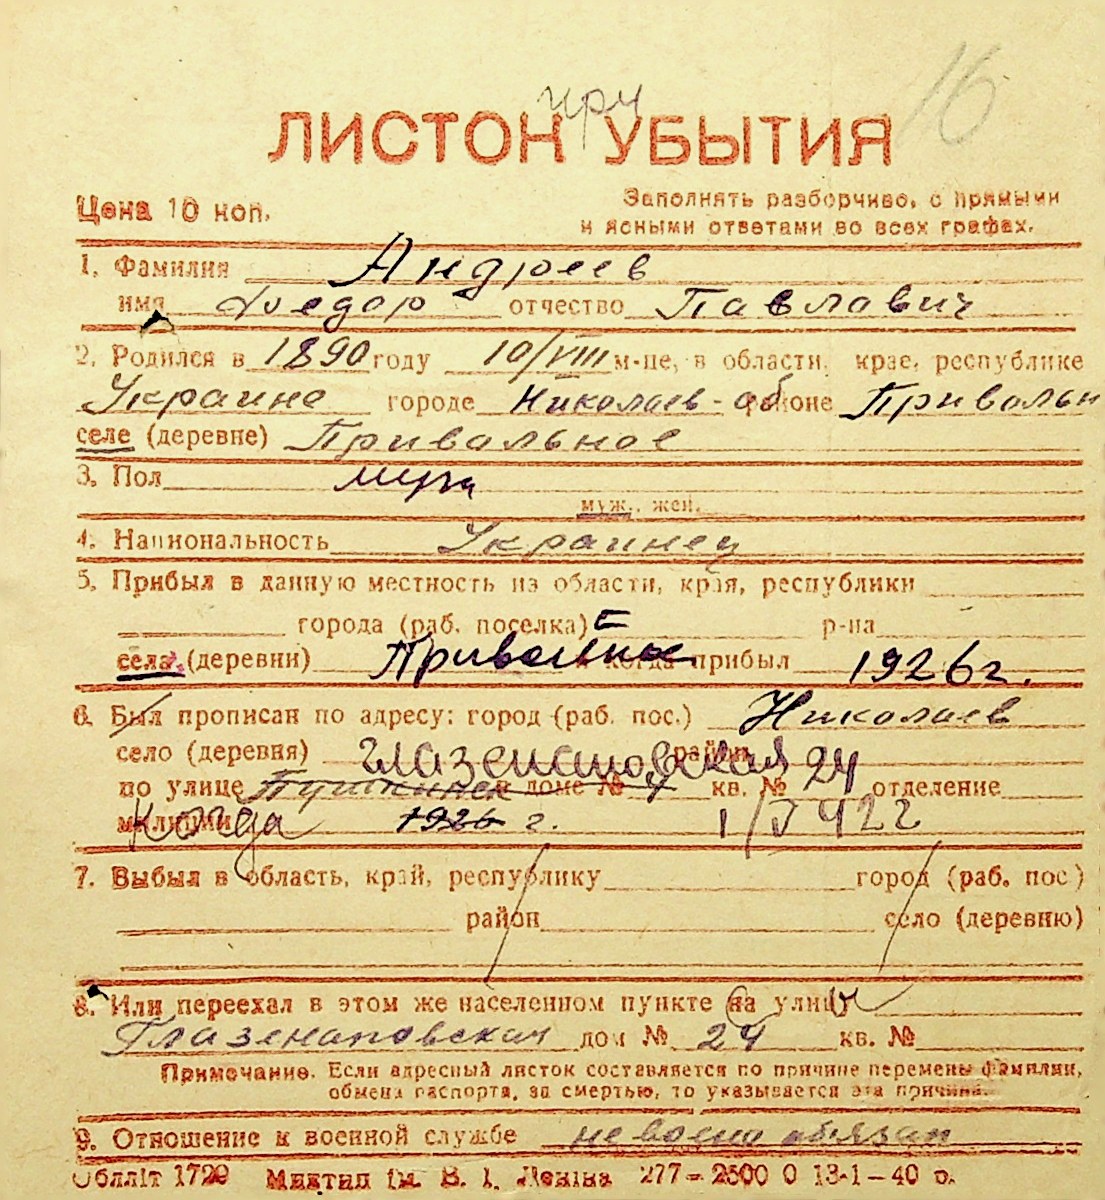 16
при
ЛИСТОК УБЫТИЯ
Цена 10 коп.
Заполнять разборчиво, с прямыми
и ясными ответами во всех графах.
1. Фамилия Андреев
имя Феодор отчество Павлович
2. Родился в 1890 году 10/VIII м-це, в области, крае, республике
Украине городе Николаев-об районе Привольн
селе (деревне) Привольное
3. Пол муж
муж., жен.
4. Национальность Украинец
5. Прибыл в данную местность из области, края, республики
города (раб. поселка) С р-на
села, (деревни) и когда прибыл 1926 г.
6. Был прописан по адресу: город (раб. пос.) Николаев
село (деревня) Глазенаповская район 24
по улице доме № кв. № отделение
милиции Когда 1926 г. 1/V 42 г
7. Выбыл в область, край, республику город (раб. пос.)
район село (деревню)
8. Или переехал в этом же населенном пункте на улицу
Глазенаповская дом № 24 кв. №
Примечание. Если адресный листок составляется по причине перемены фамилии,
обмена паспорта, за смертью, то указывается эта причина.
9. Отношение к военной службе не военно обязан
Облліт 1729 Миктип ім. В. І. Леніна 277—2500 0 13-1-40 р.